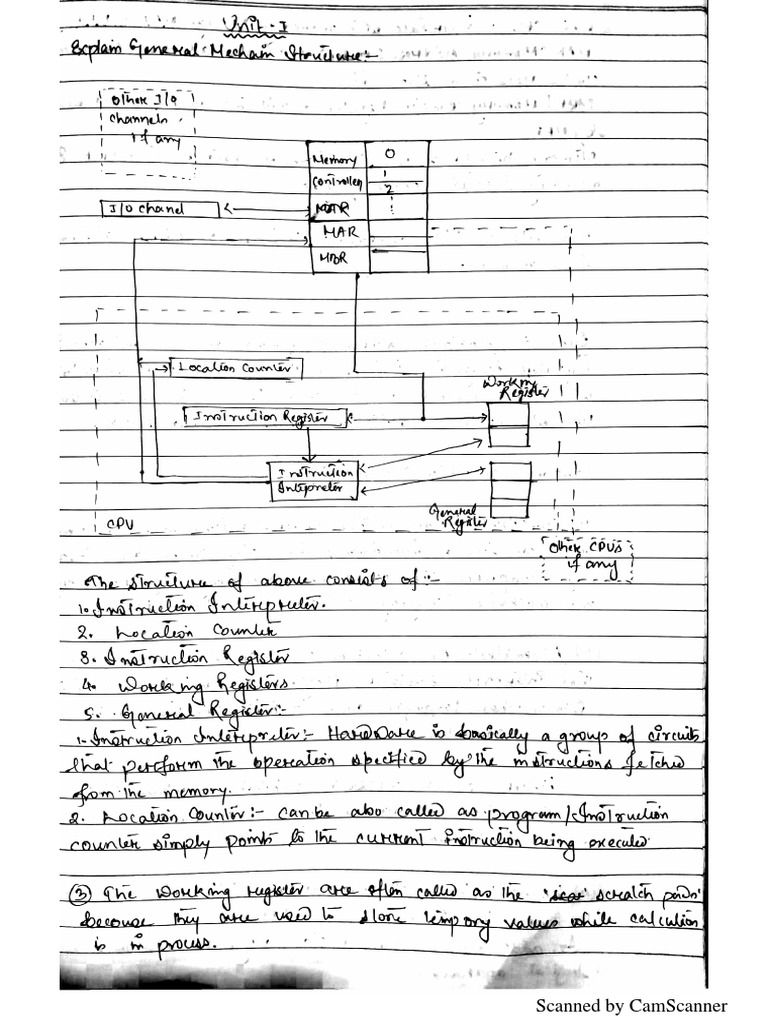 Unit - I
Explain General Mechain Structure:-
Other I/O
channels
if any
Memory 0
Controller 1
2
MAR
I/O Chanel
MAR
MDR
Location Counter
Working
Register
Instruction Register
Instruction
Intepreter
General
Register
CPU
Other CPUs
if any
The structure of above consists of :-
1. Instruction Interpreter.
2. Location Counter
3. Instruction Register
4. Working Registers
5. General Register:-
1- Instruction Interpreter:- Hardware is basically a group of circuits
that perform the operation specified by the instructions fetched
from the memory.
2. Location Counter:- can be also called as program/Instruction
counter simply points to the current instruction being executed
③ The working register are often called as the 'scratch pads'
because they are used to store tempory values while calcution
is in process.
Scanned by CamScanner